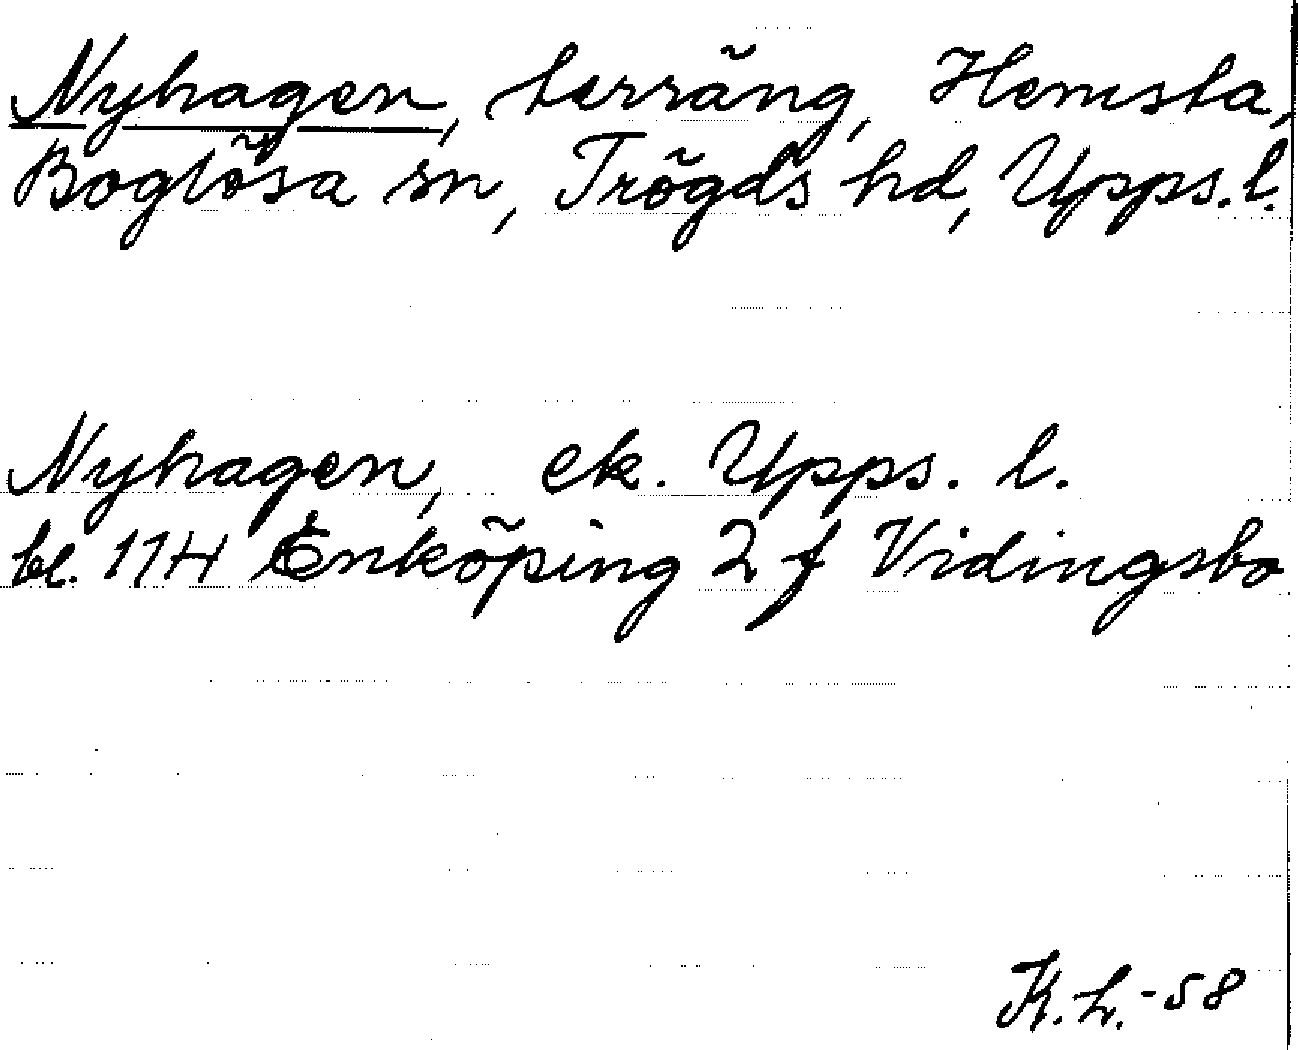 Nyhagen, terräng, Hemsta,
Boglösa sn, Trögds hd, Upps. l.
Nyhagen, ek. Upps. l.
bl. 114 Enköping 2 f Vidingsbo
K. L. -58